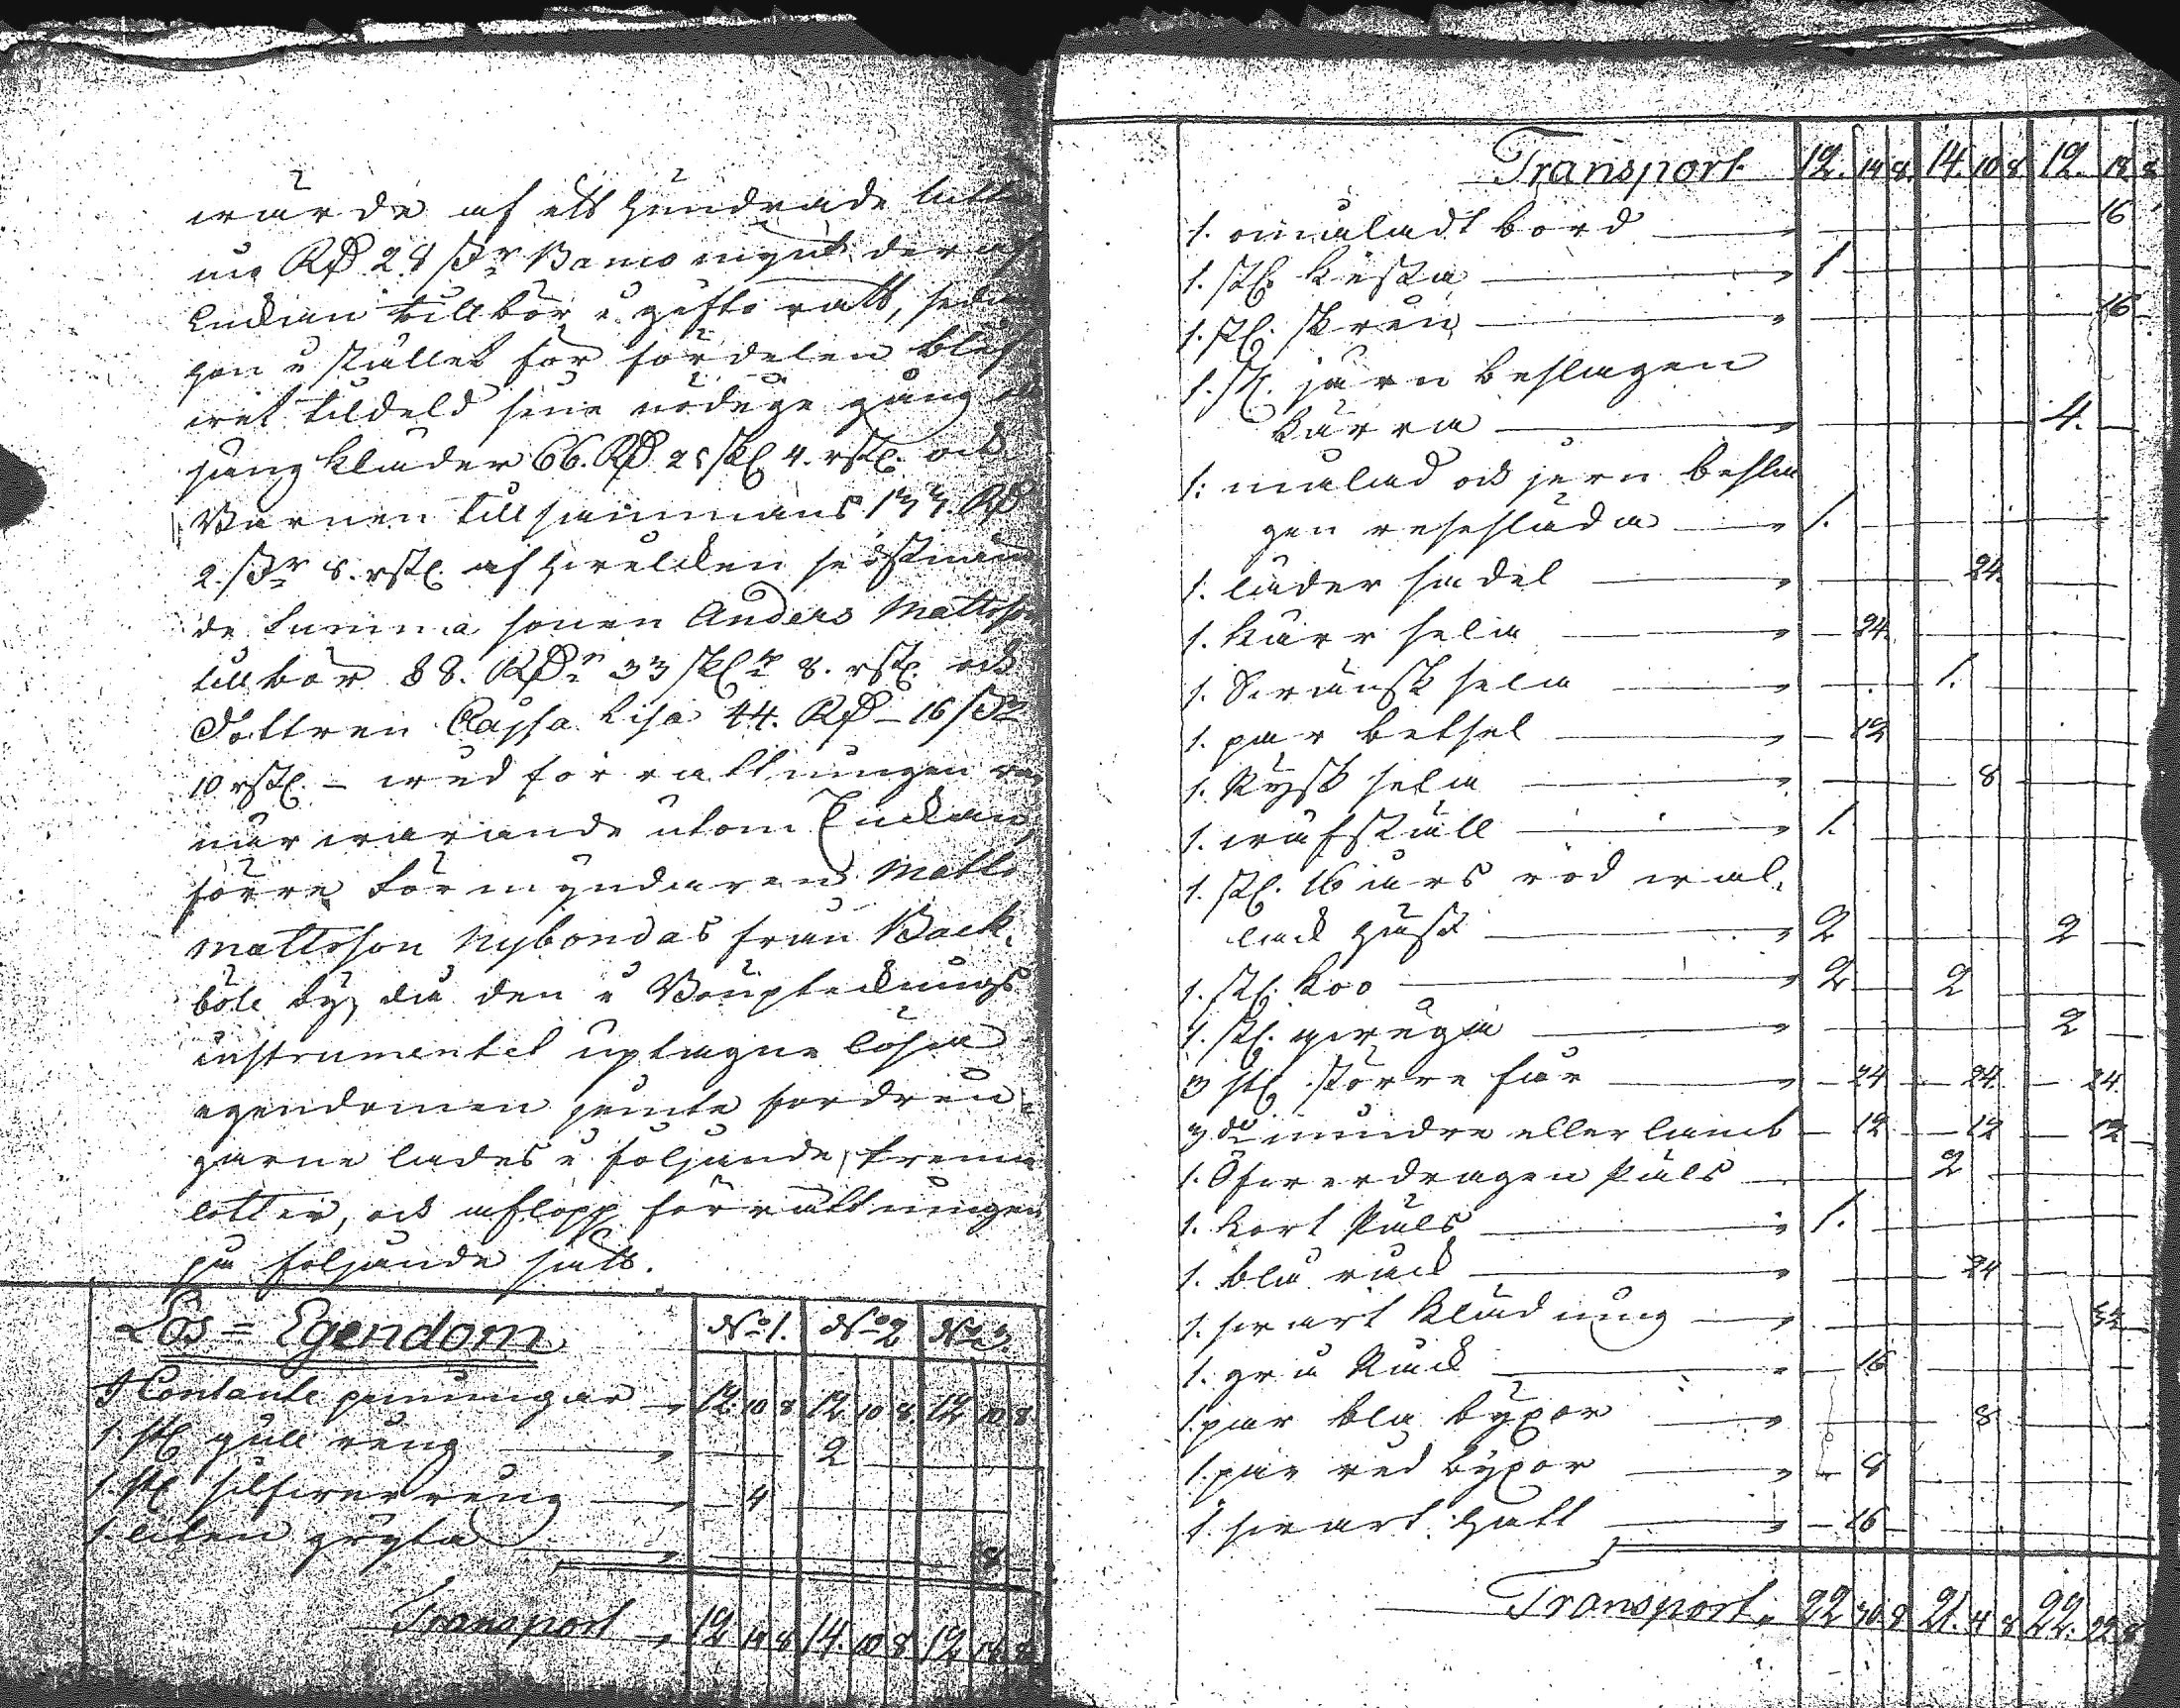 wärde af ett hundrade sutti
nie Rd 28 sk:r Banco njuter deraf
Enckan tillbör i gifto rätt, sedan
hon i stället för fördelen blif
wit tildeld sina nödige gång och
säng kläder 66. Rd 25 sk. 4. rst. och
Barnen tillsammans 133. Rd
2. sk:r 8. rst. af hwilcken sidstnäm
de Summa sonen Anders Mattsson
tillbör 88. Rd:r 33 sk:r 8. rst. och
Dottren Cajsa Lisa 44. Rd 16 sk:r
10 rst. – wid förrättningen wa
närwarande utom Enckan,
förre Förmyndaren Matts
Mattsson Nybondas från Back-
böle by, då den i Bouptecknings
instrumentet uptagne lösa
egendomen jemte fordrin-
garne lades i följande trenne
lotter, och aflopp förrättningen
på följande sätt.
Lös = Egendom No 1. No 2 No 3.
I Contante penningar 12. 10 8 12 10 8 12 10 8
1 st. gull ring 2
1. st. silfwer ring 4
1 liten gryta 8
Transport 12 14 8 14. 10 8 12 18 8
Transport 12. 14 8. 14. 10 8 12. 18 8
1. omåladt bord 16
1. st. kista 1
1. st. skrin 16
1. st. järn beslagen
kärra 4.
1: målad och jern besla
gen resesläda 1.
1: läder sadel 24.
1. kärr sela 24.
1. Swänsk sela 1.
1. par betsel 12
1. Rysk sela 8
1. wäfställ 1.
1. st. 16 års röd wal-
lack häst 2 2
1. st. Koo 2 2
1. st. qwiga 2
3 st. större får 24 24. 24.
3 do mindre eller lamb 12 12 12
1. Öfwerdragen Päls 2
1. kort Päls 1.
1. blå rack 24
1. swart Klädning 32
1. grå Rack 16
1. par blå byxor 8
1. par red byxor 8
1. swart hatt 16
Transport 22 30 8 21. 4 8 22. 22 8